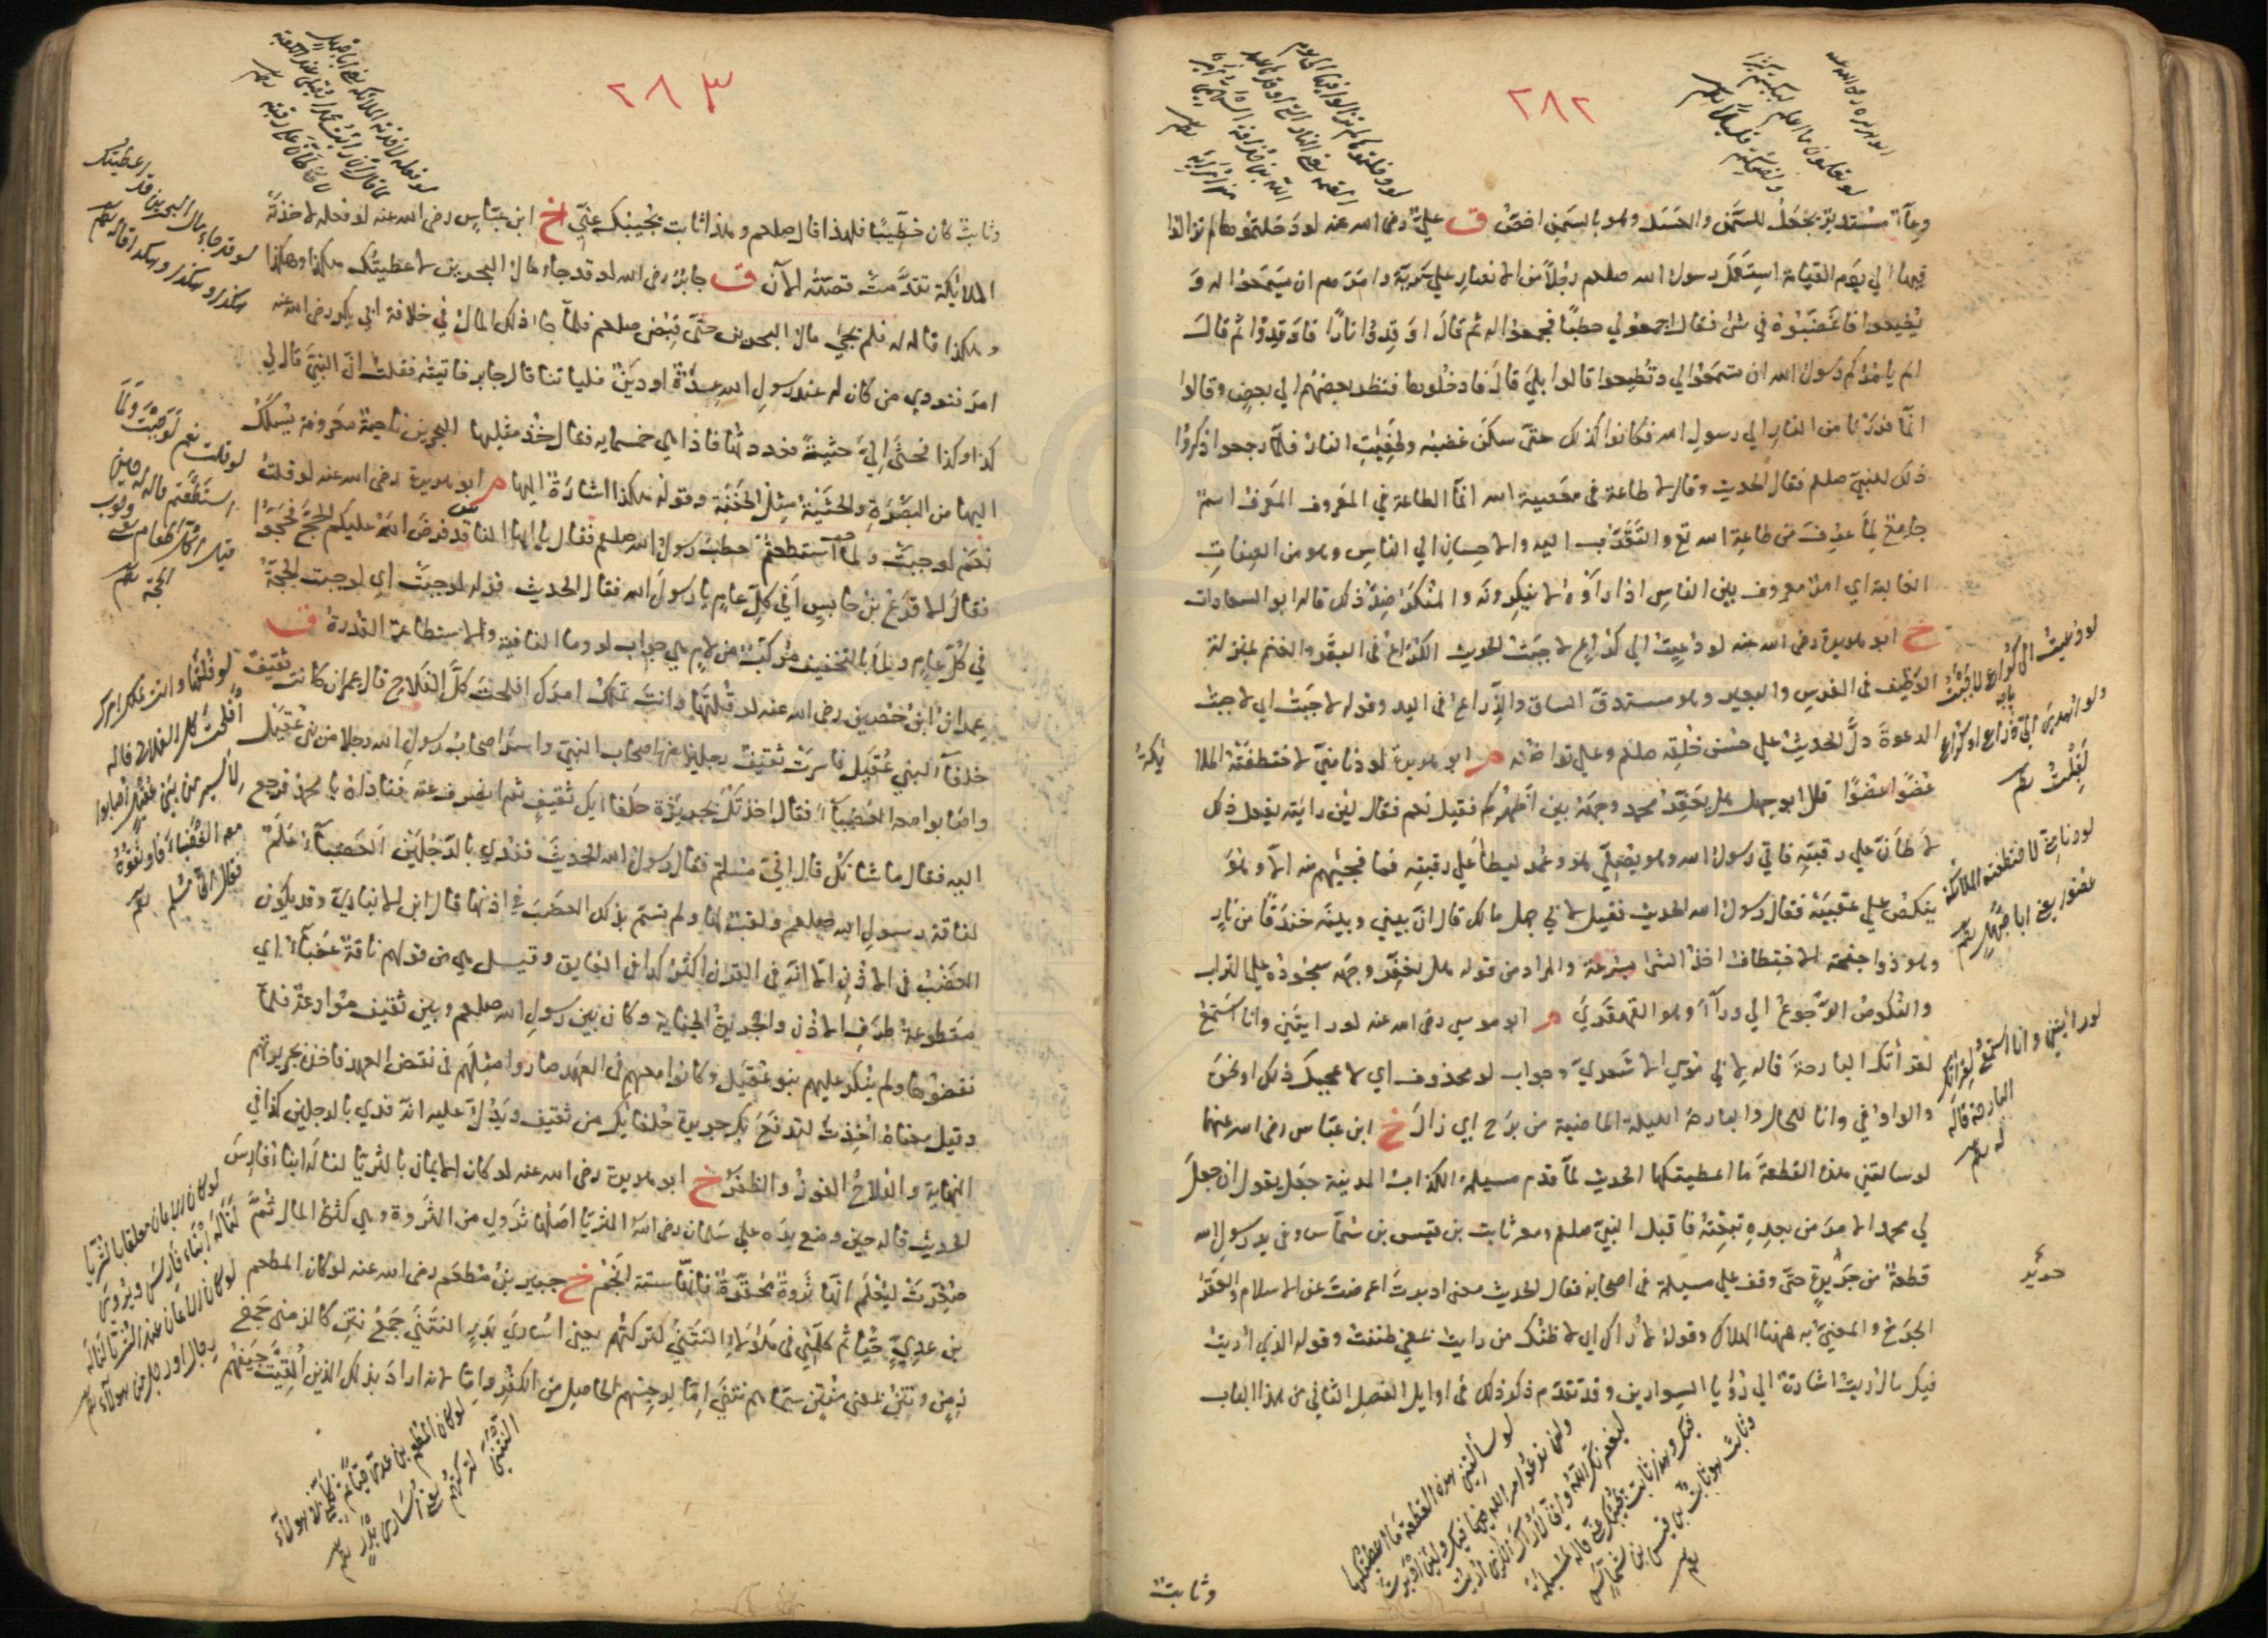 ٢٨٢
وعآء مستدير يجعل للسمن والعسل وهو بالسمن اخص ق علي رضى الله عنه لو دخلتموها لم تزالوا
فيها الي يوم القيامة استعمل رسول الله صلعم رجلاً من الانصار علي سرية وامرهم ان يسمعوا له و
يطيعوا فاغضبوه في شئ فقال اجمعوا لي حطبًا فجمعوا له ثم قال اوقدوا نارًا فاوقدوا ثم قال
الم يامركم رسول الله ان تسمعوا لي وتطيعوا قالوا بلي قال فادخلوها فنظر بعضهم الي بعض وقالوا
انما فررنا من النار الي رسول الله فكانوا كذلك حتي سكن غضبه وطفيت النار فلما رجعوا ذكروا
ذلك للنبي صلعم فقال الحديث وقال لا طاعة في معصية الله انما الطاعة في المعروف المعرف اسم
جامع لما عرف من طاعة الله تع والتقرب اليه والاحسان الي الناس وهو من الصفات
الغالبة اي امر معروف بين الناس اذا راوه لا ينكرونه والمنكر ضد ذلك قاله ابو السعادات
خ ابو هريرة رضى الله عنه لو دعيت الي كراع لاجبت الحديث الكراع في البقر والغنم بمنزلة
الوظيف في الفرس والبعير وهو مستدق الساق والذراع في اليد وقوله لاجبت اي لاجبت
الدعوة دل الحديث علي حسن خلقه صلعم وعلي تواضعه م ابو هريرة لو دنا مني لاختطفته الملا
ئكة
عضوًا عضوًا قال ابو جهل هل يعفر محمد وجهه بين اظهركم فقيل نعم فقال لئن رايته يفعل ذلك
لاطأن علي رقبته فاتي رسول الله وهو يصلي وعمد ليطأ علي رقبته فما فجيهم منه الا وهو
ينكص علي عقبيه فقال رسول الله الحديث فقيل لابي جهل مالك قال ان بيني وبينه خندقًا من نار
وهو ذوا جنحة الاختطاف اخذ الشئ بسرعة والمراد من قوله هل يعفر وجهه سجوده علي التراب
والنكوص الرجوع الي ورآء وهو القهقري م ابو موسي رضى الله عنه لو رايتني وانا استمع
لقرأتك البارحة قاله لابي موسي الاشعري وجواب لو محذوف اي لاعجبك ذلك او نحوه
والواو في وانا للحال والبارحة الليلة الماضية من برح اي زال خ ابن عباس رضى الله عنهما
لو سالتني هذه القطعة ما اعطيتكها الحديث لما قدم مسيلمة الكذاب المدينة جعل يقول ان جعل
لي محمد الامر من بعده تبعته فاقبل النبي صلعم ومعه ثابت بن قيس بن شماس وفي يد رسول الله
قطعة من جريد حتي وقف علي مسيلمة في اصحابه فقال الحديث معني ادبرت اعرضت عن الاسلام والعقر
الجرح والمعني به ههنا الهلاك وقوله لاراك اي لاظنك من رايت بمعني ظننت وقوله الذي اريت
فيك ما اريت اشارة الي رؤيا السوارين وقد تقدم ذكر ذلك في اوايل الفصل الثاني من هذا الباب
وثابت
لو تعلمون ما اعلم لبكيتم كثيرًا
ولضحكتم قليلاً
لو دعيت الى كراع لاجبت
ولو اهدي الي ذراع او كراع
لقبلت
لو دنا مني لاختطفته الملائكة
عضوا يعني ابا جهل
لو رأيتني وانا استمع لقرائتك
البارحة قاله
له
لو سألتني هذه القطعة ما اعطيتكها
ولن تعدو امر الله فيك ولئن ادبرت
ليعقرنك الله واني لاراك الذي اريت
فيك وهذا ثابت يجيبك عني قاله لمسيلمة
وثابت هو ثابت بن قيس بن شماس
٢٨٣
وثابت كان خطيبًا فلهذا قال صلعم وهذا ثابت يجيبك عني خ ابن عباس رضى الله عنه لو فعله لاخذته
الملائكة تقدمت قصته الآن ق جابر رضى الله لو قد جاء مال البحرين لاعطيتك هكذا وهكذا
وهكذا قاله له فلم يجئ مال البحرين حتي قبض صلعم فلما جاء ذلك المال في خلافة ابي بكر رضى الله عنه
امر فنودي من كان له عند رسول الله عدة او دين فلياتنا قال جابر فاتيته فقلت ان النبي قال لي
كذا وكذا فحثي الي حثية فعددتها فاذا هي خمسمايه فقال خذ مثليها البحرين ناحية معروفة يسلك
اليها من البصرة والحثية مثل الحفنة وقوله هكذا اشارة اليها م ابو هريرة رضى الله عنه لو قلت
نعم لوجبت ولما استطعتم خطب رسول الله صلعم فقال يا ايها الناس قد فرض الله عليكم الحج فحجوا
فقال الاقرع بن حابس أفي كل عام يا رسول الله فقال الحديث قوله لوجبت اي لوجبت الحجة
في كل عام ولما بالتخفيف مركب من لام هي جواب لو وما النافية والاستطاعة القدرة ق
عمران ابن حصين رضى الله عنه لو قلتها وانت تملك امرك افلحت كل الفلاح قال عمران كانت ثقيف
حلفآء لبني عقيل فاسرت ثقيف رجلين من اصحاب النبي واسر اصحاب رسول الله رجلا من بني عقيل
واصابوا معه العضبآء فقال اخذتك بجريرة حلفائك ثقيف ثم انصرف عنه فناداه يا محمد فرجع
اليه فقال ما شانك قال اني مسلم فقال رسول الله الحديث ففدي بالرجلين العضبآء علم
لناقة رسول الله صلعم ولقبت لها ولم تسم بذلك لعضب في اذنها قال ابن الانباري وقد يكون
العضب في الاذن الا انه في القرن اكثر كذا في الفايق وقيل هي من قولهم ناقة عضبآء اي
مقطوعة طرف الاذن والجريرة الجناية وكان بين رسول الله صلعم وبين ثقيف موادعة فلما
نقضوها ولم ينكر عليهم بنو عقيل وكانوا معهم في العهد صاروا مثلهم في نقض العهد فاخذ بجريرتهم
وقيل معناه اخذت لتدفع بك جريرة حلفائك من ثقيف ويدل عليه انه فدي بالرجلين كذا في
النهاية والفلاح الفوز والظفر خ ابو هريرة رضى الله عنه لو كان الايمان بالثريا لناله ابناء فارس
الحديث قاله حين وضع يده علي سلمان رضى الله الثريا اصلها ثروي من الثروة وهي كثرة المال ثم
صغرت ليعلم انها ثروة محقرة فانها ستة انجم خ جبير بن مطعم رضى الله عنه لو كان المطعم
بن عدي حيًا ثم كلمني في هؤلاء النتني لتركتهم يعني اسارى بدر النتني جمع نتن كالزمني جمع
زمن ونتن بمعني منتن سماهم نتني اما لرجسهم الحاصل من الكفر واما لانه اراد بذلك الذين القيت جيفهم
لو فعله لاخذته الملائكة يعني ابا جهل
لو قد جاء مال البحرين قد اعطيتك
هكذا وهكذا وهكذا قاله
لو قلت نعم لوجبت ولما
استطعتم قاله حين
لو قلتها وانت تملك امرك
أفلحت كل الفلاح قاله
لأسير من بني عقيل اصابوا
معه العضباء فاوثقوه
فقال اني مسلم
لو كان الايمان معلقا بالثريا
لناله ابناء فارس ويروى
لو كان الايمان عند الثريا لناله
رجال او رجل من هولآء
لو كان المطعم بن عدي حيا ثم كلمني في هولآء
النتنى لتركتهم يعني اسارى بدر